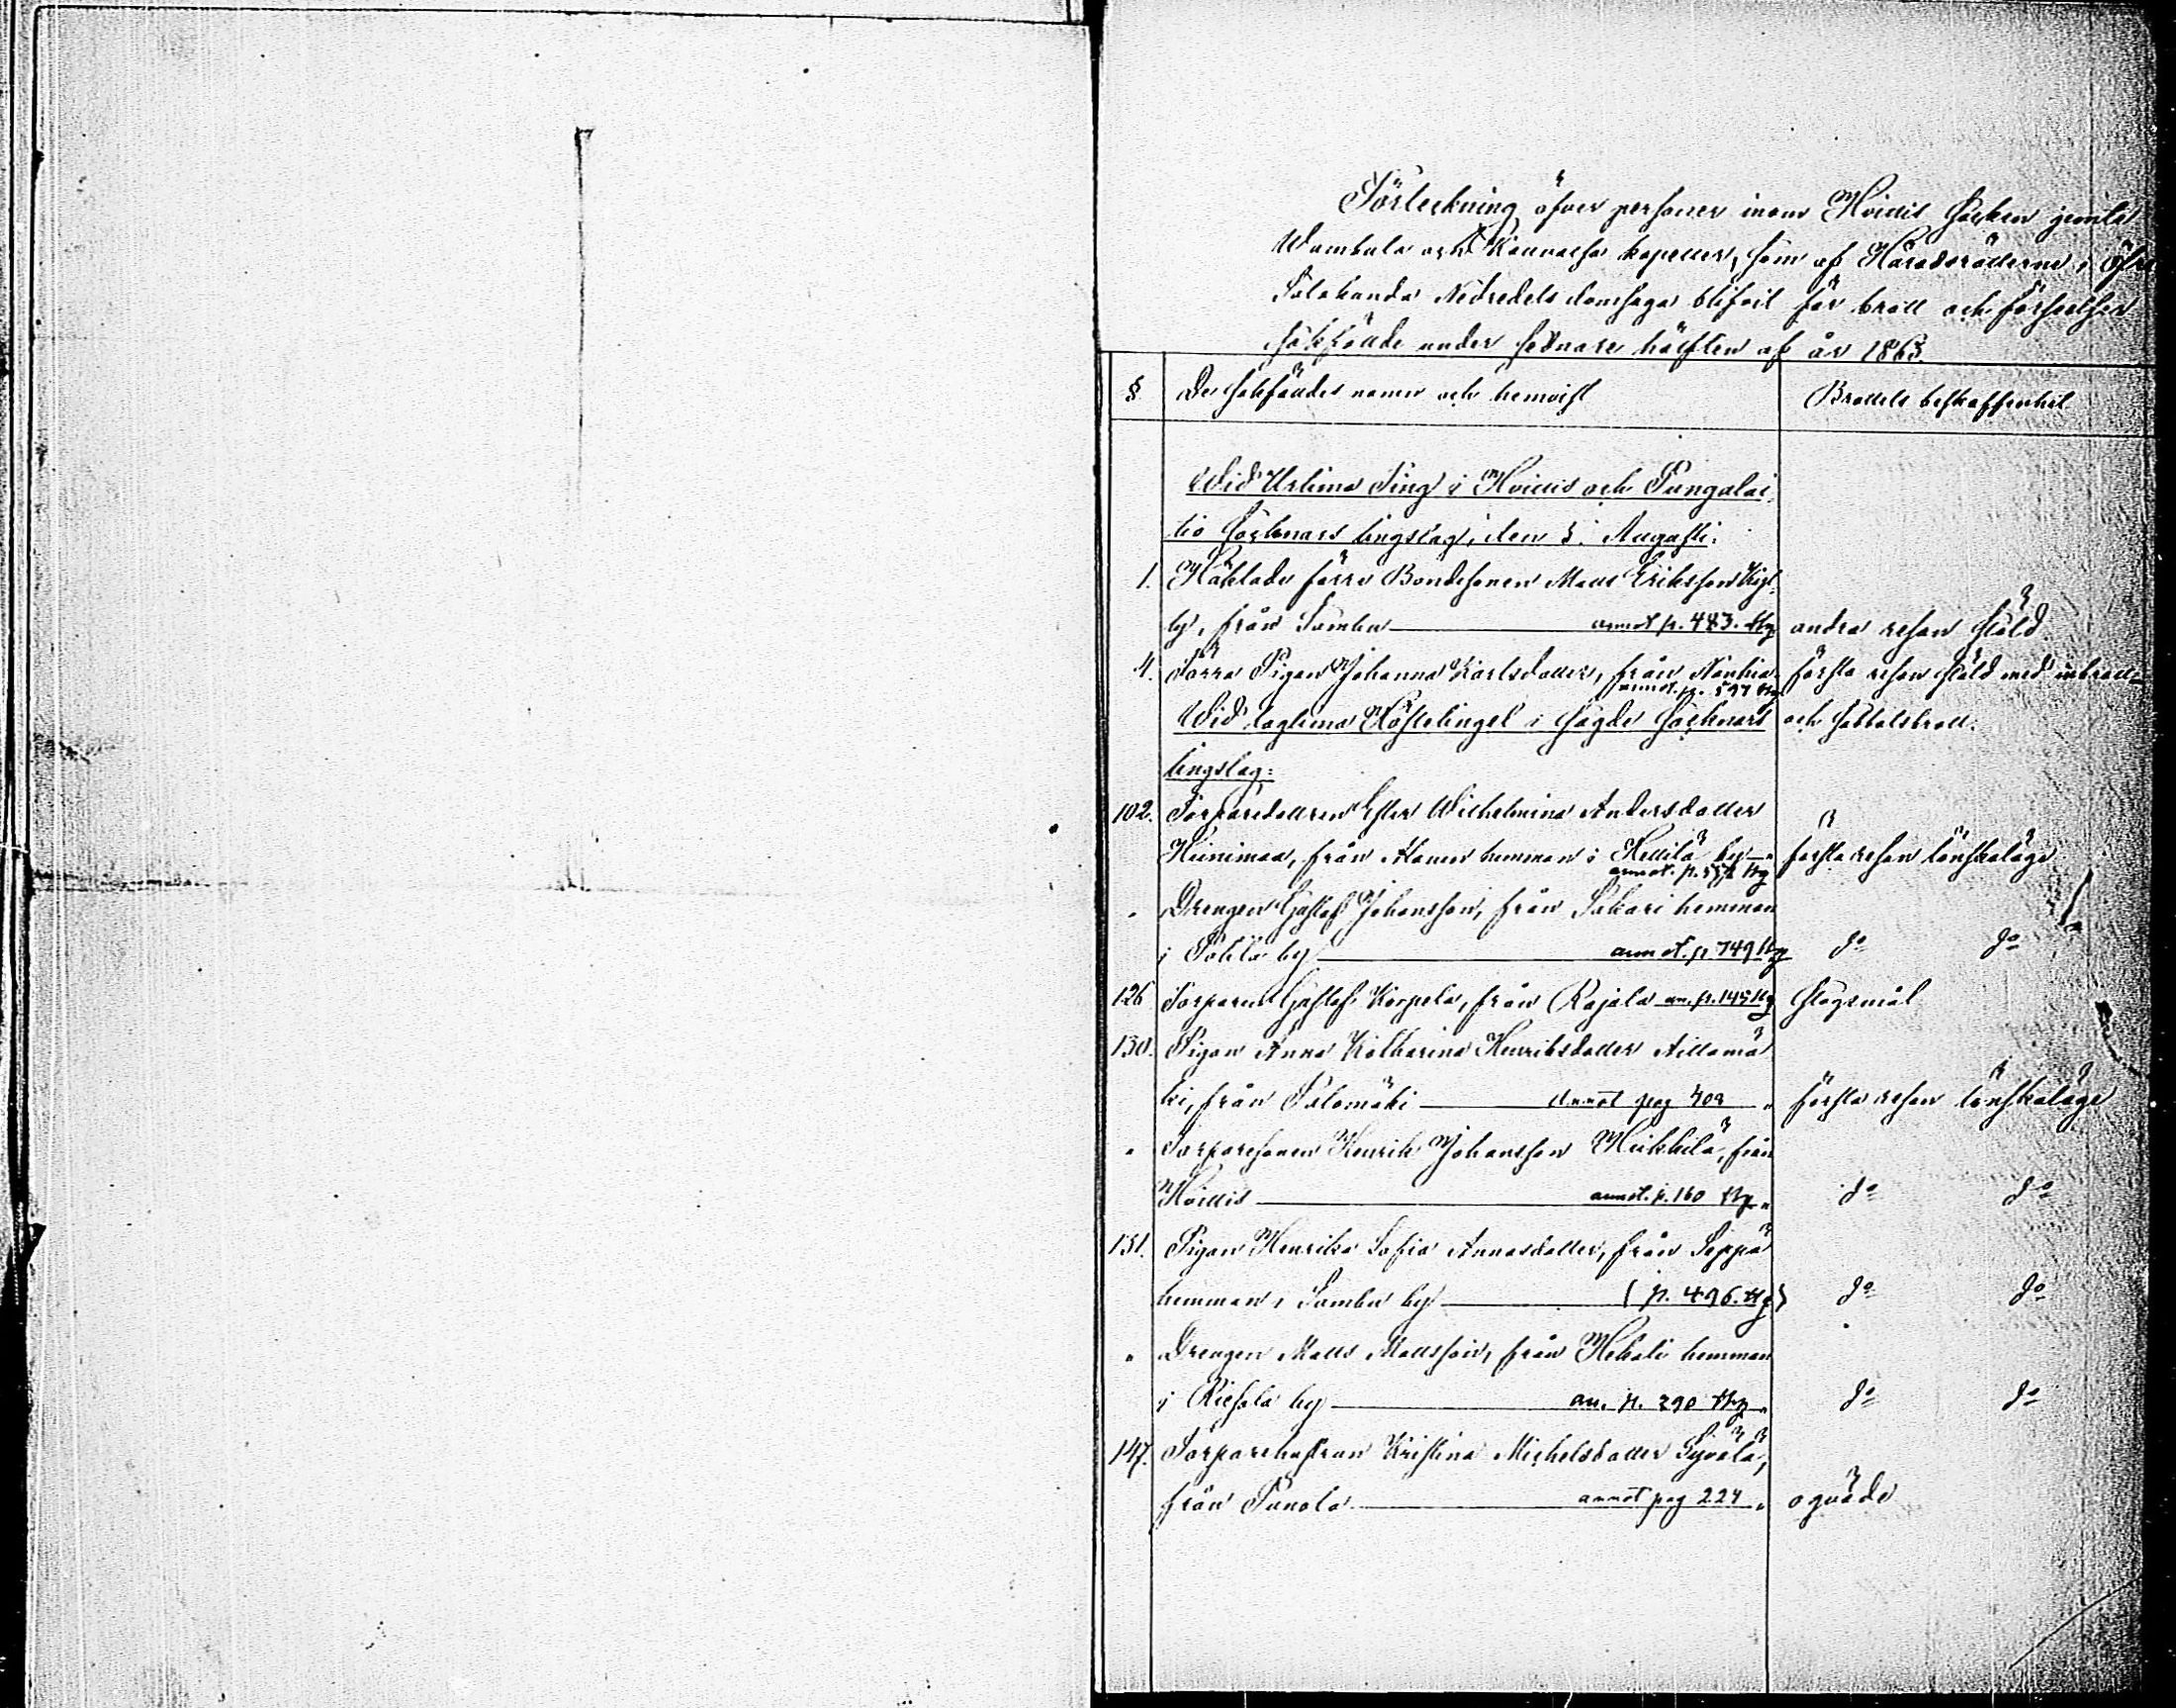 Förteckning öfver personer inom Hvittis socken jemte
Wambula och Kauvatsa kapeller, som af Häradsrätterne i Öfre
Satakunda Nedredels domsaga blifvit för brott och förseelser
sakfällde under sednare hälften af år 1863.
§ De sakfälldes namn och hemvist Brottets beskaffenhet
Wid Urtima Ting i Hvittis och Pungalai
tio Socknars tingslag, den 3. Augusti:
1. Häktade förre Bondesonen Matts Eriksson
by, från Sambu annot p. 483. andra resan stöld
4. Förra Pigan Johanna Karlsdotter, från första resan stöld med inbrott
annot. p. 597
Wid lagtima Hösttinget i sagde Socknars och sabbatsbrott.
tingslag:
102. Torparedottren Ester Wilhelmina Andersdotter
Hiinimaa, från hemman i Kettilä by första resan lönskaläge
annot. p.
" Drengen Gustaf Johansson, från Sakari hemman
i by annot. p. 749 do do
126 Torparen Gustaf Korpela, från Rajala an. p. 145 slagsmål
130. Pigan Anna Katharina Henriksdotter Aittomä
ki, från Salomäki annot pag 708 " första resan lönskaläge
" Torparesonen Henrik Johansson Mickkilä, från
Hvittis annot. p. 160 " do do
131. Pigan Henrika Sofia Annasdotter, från Seppä
hemman i Sambu by (p. 496.) do do
" Drengen Matts Mattsson, från hemman
i Riesola by an. p. 290 " do do
147. Torparehustrun Kristina Michelsdotter Syvälä,
från Punola annot pag 224 " oqväde